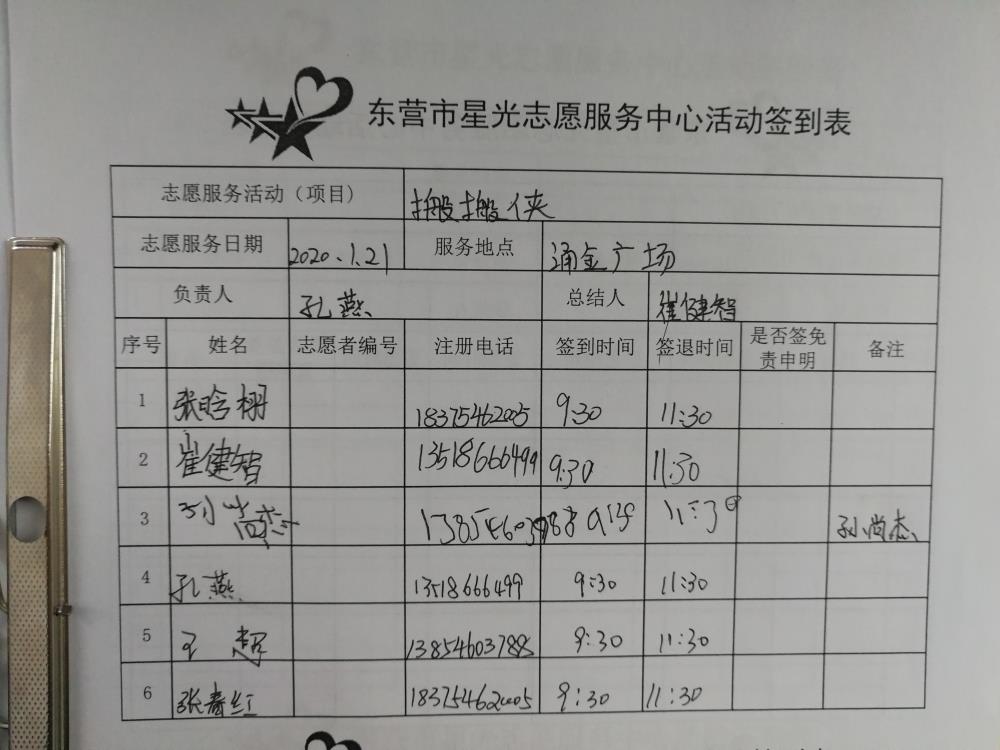 东营市星光志愿服务中心活动签到表
志愿服务活动（项目） 搬搬侠
志愿服务日期 2020.1.21 服务地点 涌金广场
负责人 孔燕 总结人 崔健智
序号 姓名 志愿者编号 注册电话 签到时间 签退时间 是否签免责申明 备注
1 张晗栩 18375462005 9:30 11:30
2 崔健智 13518666499 9:30 11:30
3 孙尚杰 13854603788 11:30 孙尚杰
4 孔燕 13518666499 9:30 11:30
5 王超 13854603788 9:30 11:30
6 张春红 18375462005 9:30 11:30